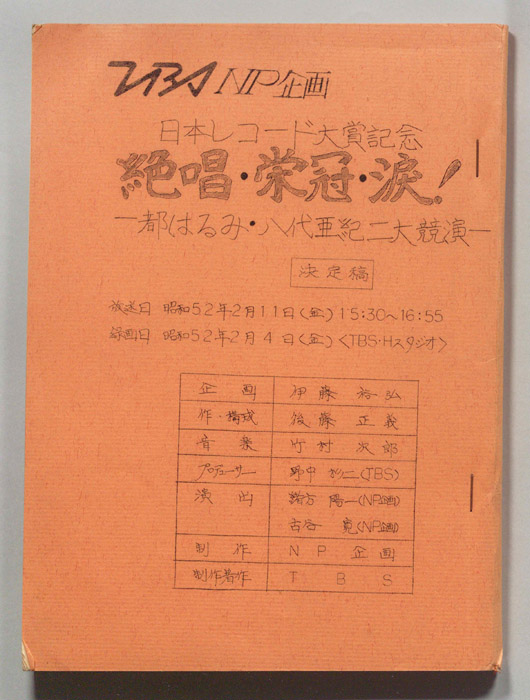 TBS NP企画
日本レコード大賞記念
絶唱・栄冠・涙!
―都はるみ・八代亜紀二大競演―
決定稿
放送日 昭和52年2月11日(金)15:30~16:55
録画日 昭和52年2月4日(金)〈TBS・Hスタジオ〉
企画 伊藤 裕弘
作・構成 後藤 正義
音楽 竹村 次郎
プロデューサー 野中 二(TBS)
演出 緒方 陽一(NP企画)
古谷 寛(NP企画)
制作 NP企画
制作著作 TBS